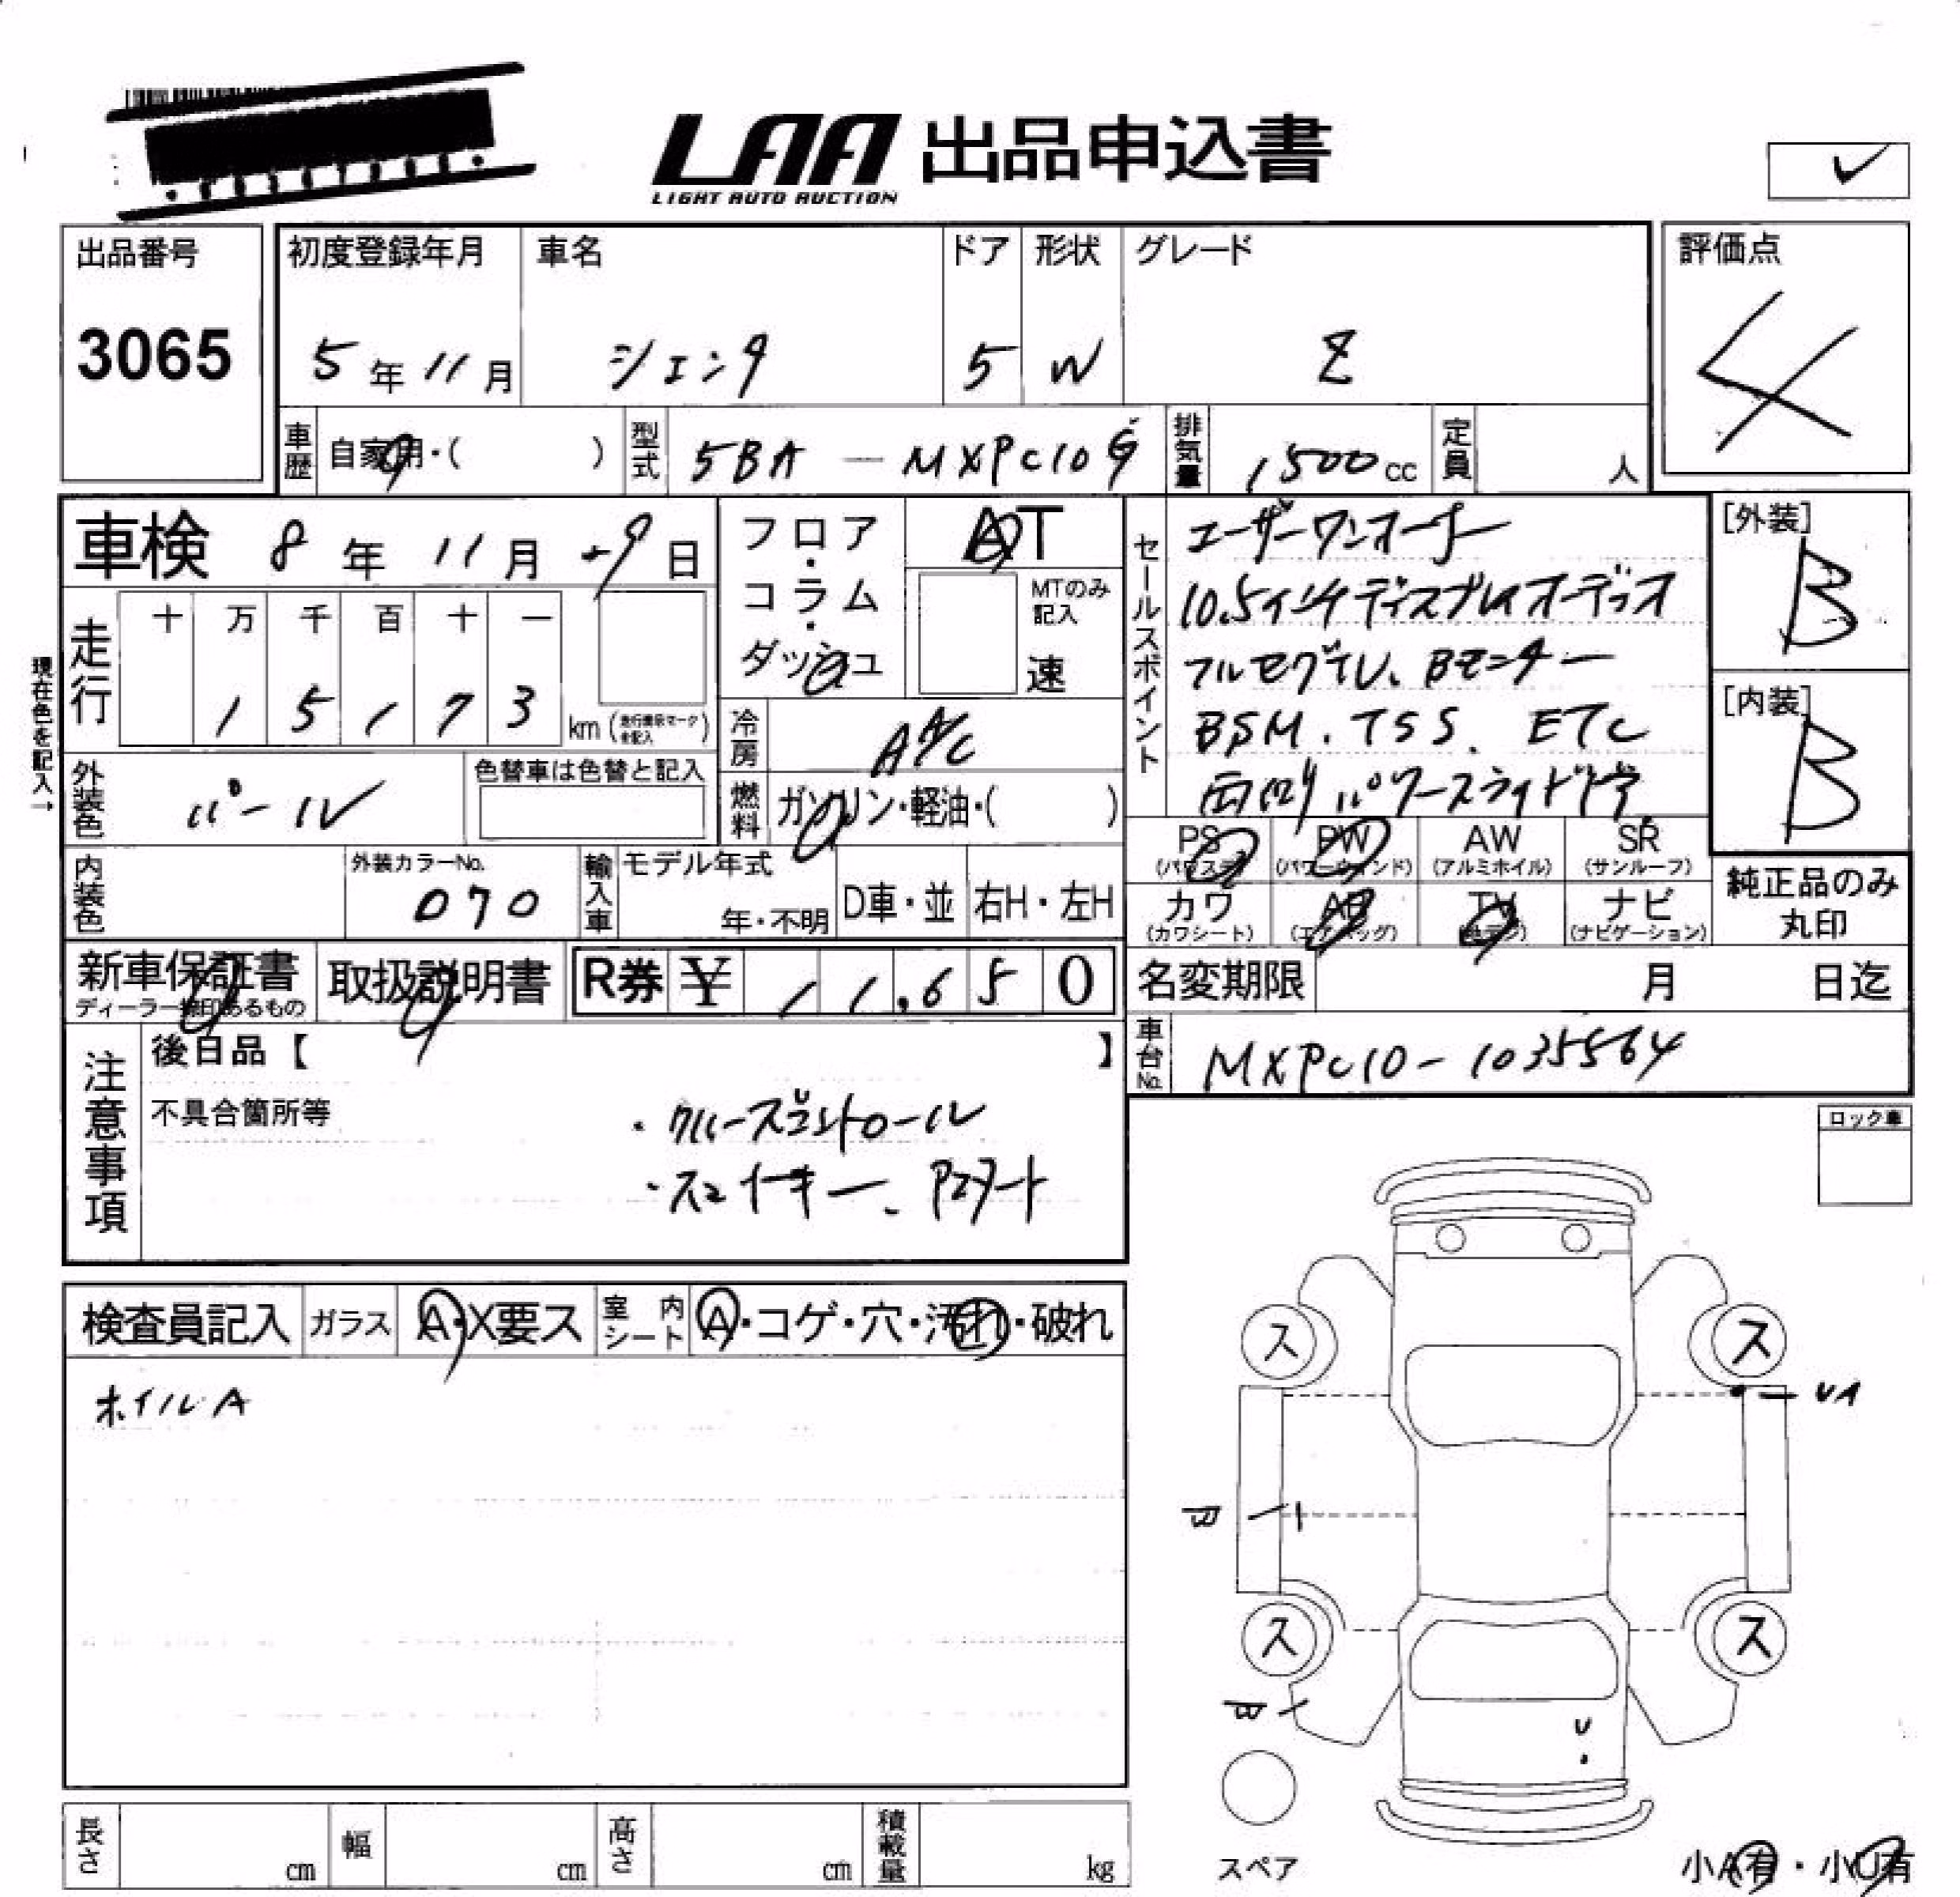 LAA 出品申込書
LIGHT AUTO AUCTION
出品番号
3065
初度登録年月
5年11月
車名
シエンタ
ドア
5
形状
W
グレード
Z
評価点
4
車歴 自家用・( )
型式 5BA-MXPC10G
排気量 1500cc
定員 人
車検 8年11月 9日
現在色を記入→
走行 十 万 千 百 十 一
1 5 1 7 3 km
外装色 パール
色替車は色替と記入
内装色
外装カラーNo.
070
フロア・コラム・ダッシュ
AT
MTのみ記入
速
冷房 AAC
燃料 ガソリン・軽油・( )
輸入車 モデル年式
年・不明
D車・並
右H・左H
セールスポイント
ユーザーワンオーナー
10.5インチディスプレイオーディオ
フルセグTV、Bモニター
BSM、TSS、ETC
両側パワースライドドア
[外装]
B
[内装]
B
PS (パワステ)
PW (パワーウィンド)
AW (アルミホイル)
SR (サンルーフ)
カワ (カワシート)
AB (エアバッグ)
TV
ナビ (ナビゲーション)
純正品のみ丸印
新車保証書
ディーラー捺印あるもの
取扱説明書
R券 ¥ 11,650
名変期限 月 日迄
車台No. MXPC10-1035564
注意事項
後日品【 】
不具合箇所等
・クルーズコントロール
・スマートキー、Pスタート
ロック車
検査員記入
ガラス A・X要ス
室内シート A・コゲ・穴・汚れ・破れ
ホイルA
ス ス
UA
ス ス
U
スペア
長さ cm
幅 cm
高さ cm
積載量 kg
小A有・小U有